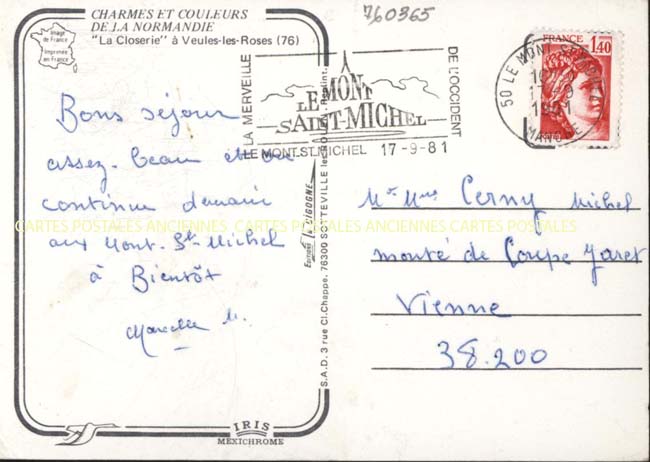 760365
CHARMES ET COULEURS
DE LA NORMANDIE
"La Closerie" à Veules-les-Roses (76)
Image
de France
Imprimée
en France
Bons séjour
assez beau et on
continue demain
aux Mont-St Michel
à Bientôt
Marcelle M.
LA MERVEILLE
LE MONT
SAINT-MICHEL
DE L'OCCIDENT
LE MONT.ST.MICHEL 17-9-81
50 LE MONT ST MICHEL
17-9
1981
MANCHE
FRANCE
1,40
Editions la CIGOGNE
S.A.D. 3 rue Cl.Chappe. 76300 SOTTEVILLE
Mr Mme Cerny Michel
monté de Coupe Jaret
Vienne
38.200
CARTES POSTALES ANCIENNES CARTES POSTALES ANCIENNES CARTES POSTALES
IRIS
MEXICHROME